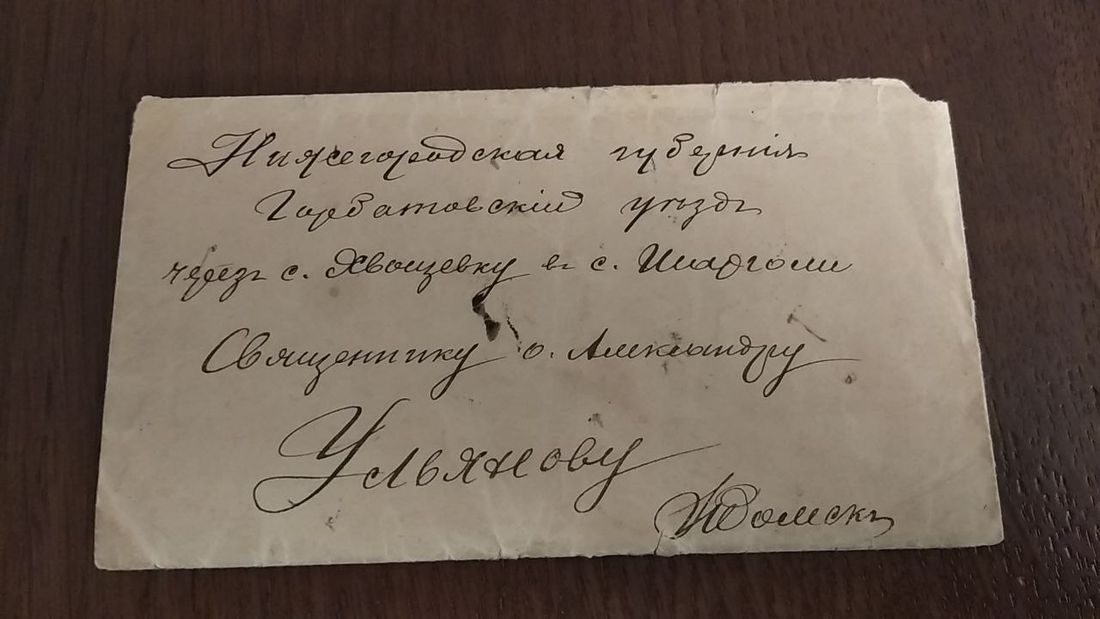 Нижегородская губернія
Горбатовскій уѣздъ
черезъ с. Хвощевку въ с. Шарголи
Священнику о. Александру
Ульянову